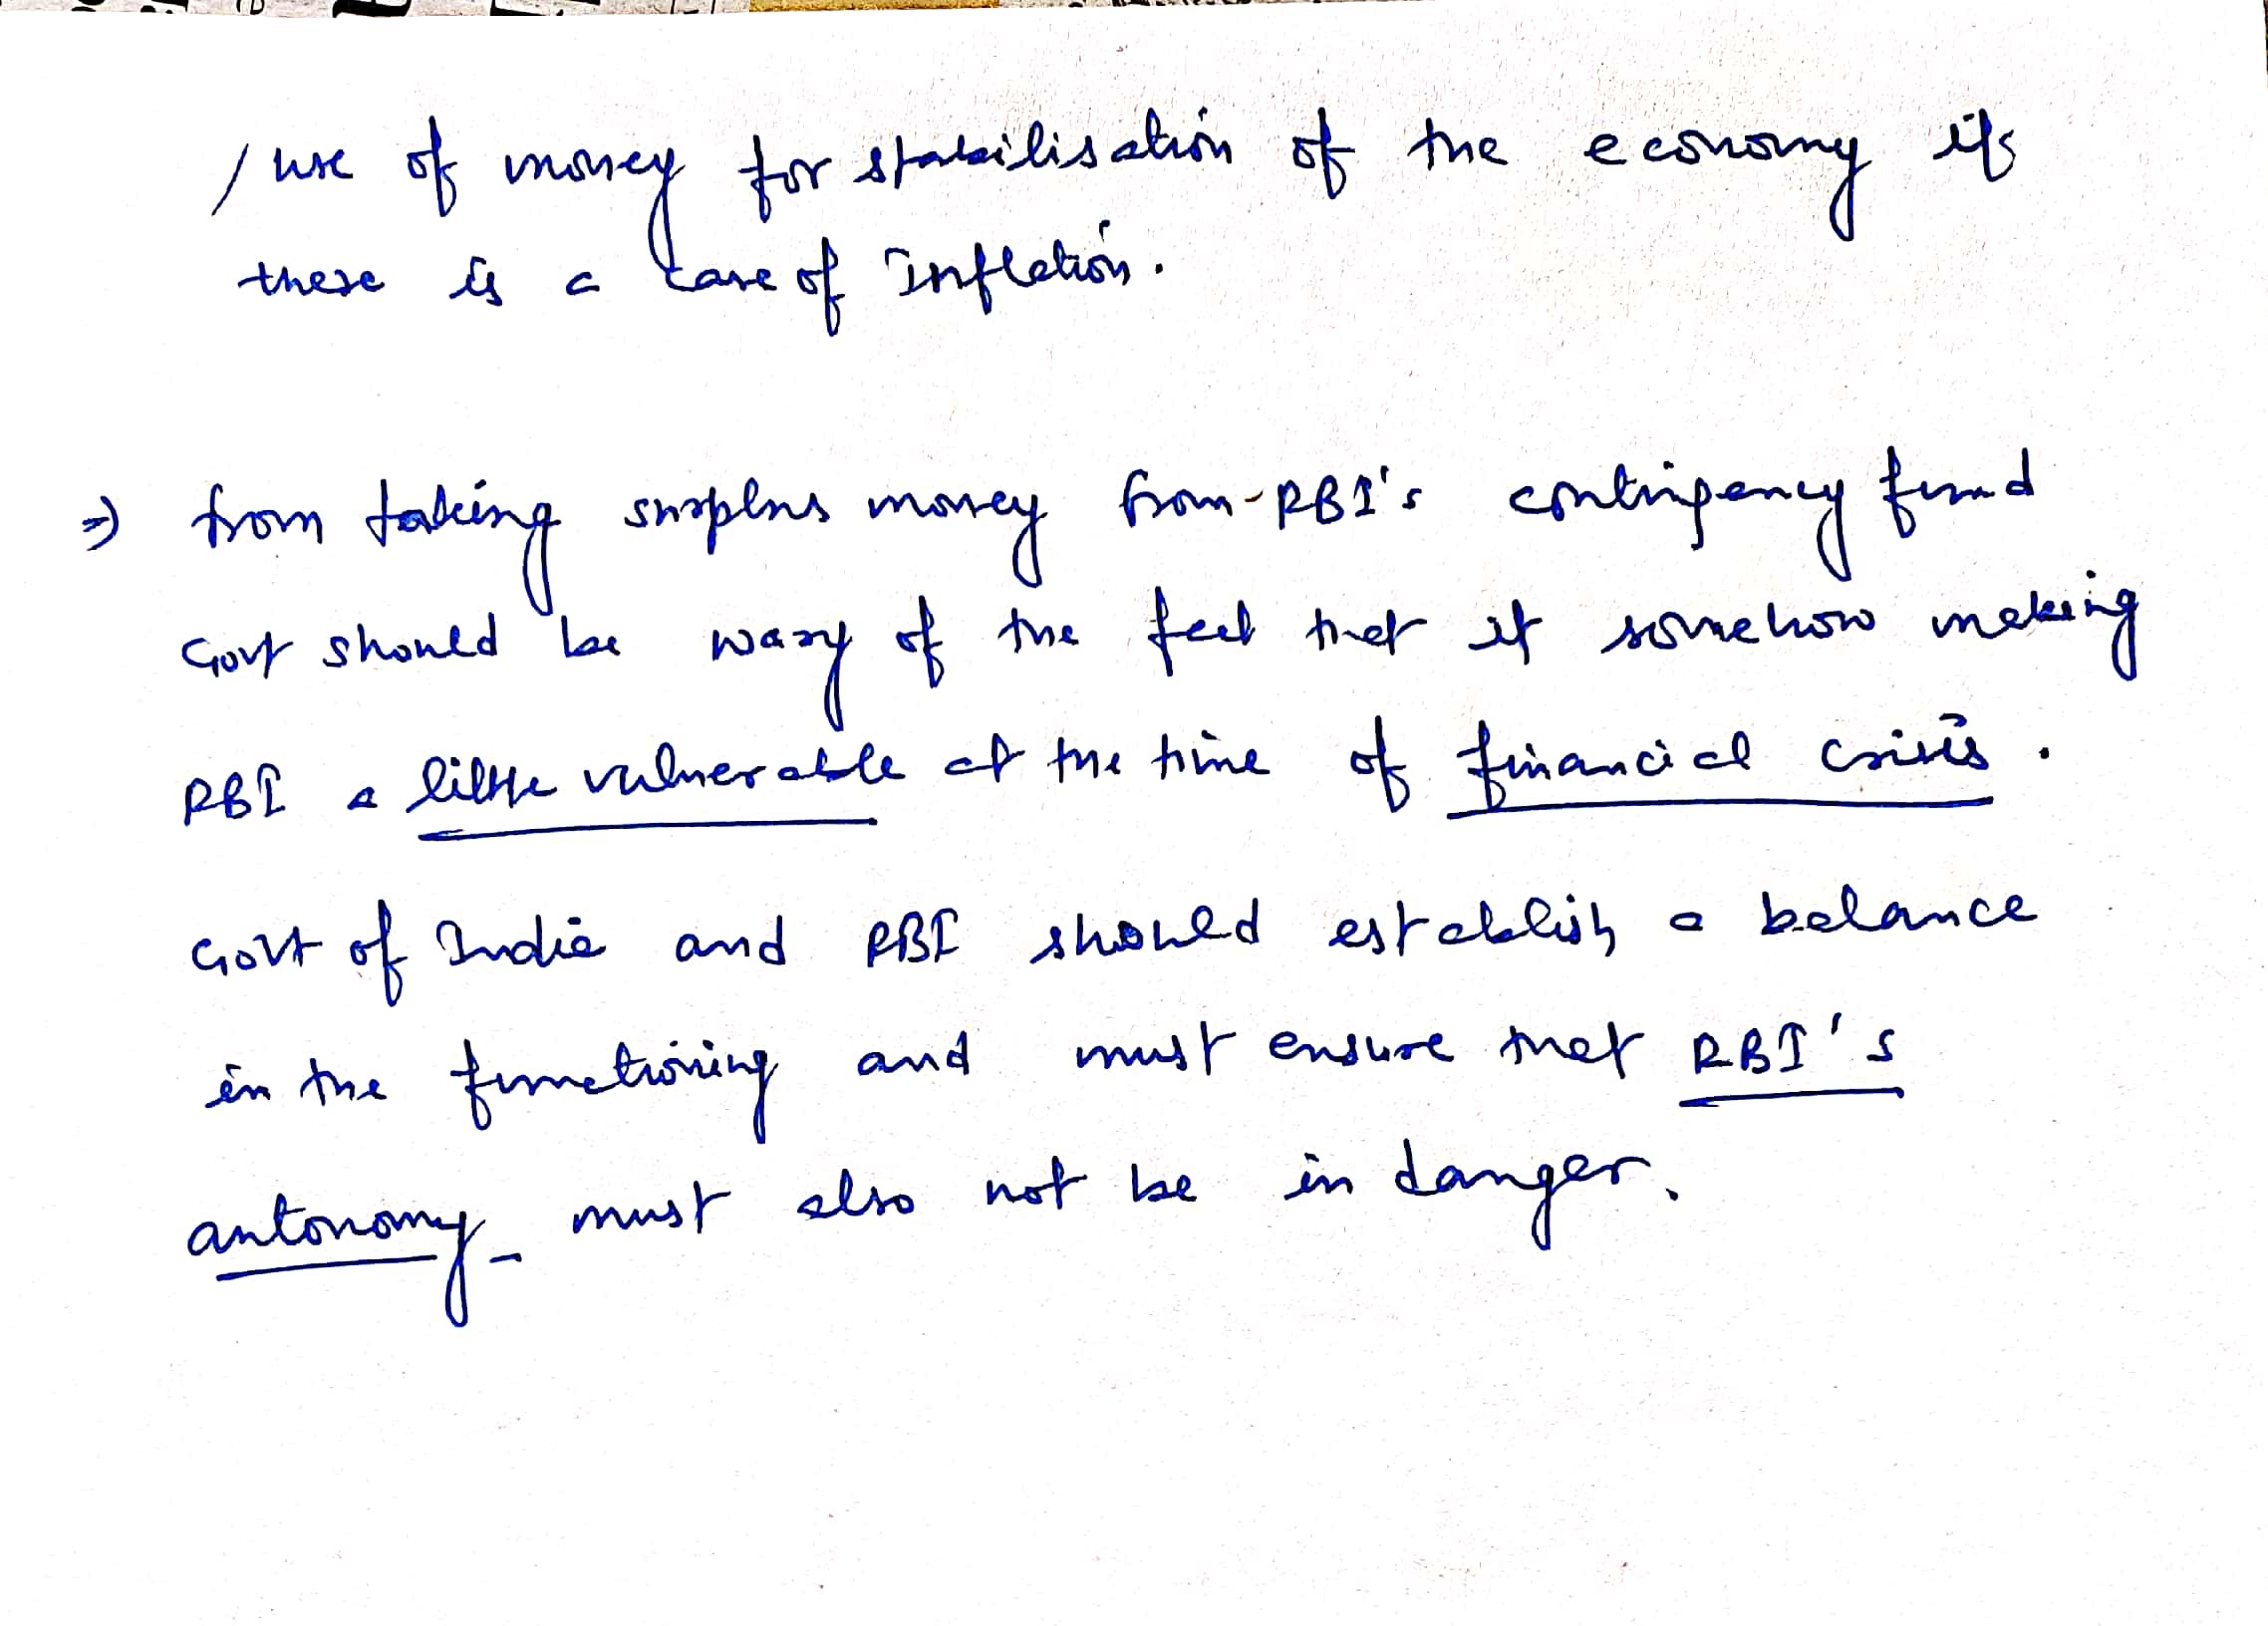 / use of money for stabilisation of the economy if
there is a case of Inflation.
⇒ from taking surplus money from RBI's contingency fund
Govt should be wary of the fact that it somehow making
RBI a little vulnerable at the time of financial crisis.
Govt of India and RBI should establish a balance
in the functioning and must ensure that RBI's
autonomy must also not be in danger.